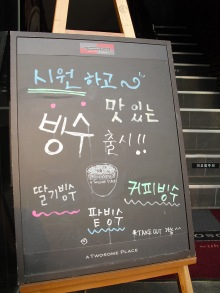 시원하고~
맛있는
빙수
출시!!
A TWOSOME PLACE
딸기빙수
커피빙수
팥빙수
*TAKE OUT 가능~
A TWOSOME PLACE